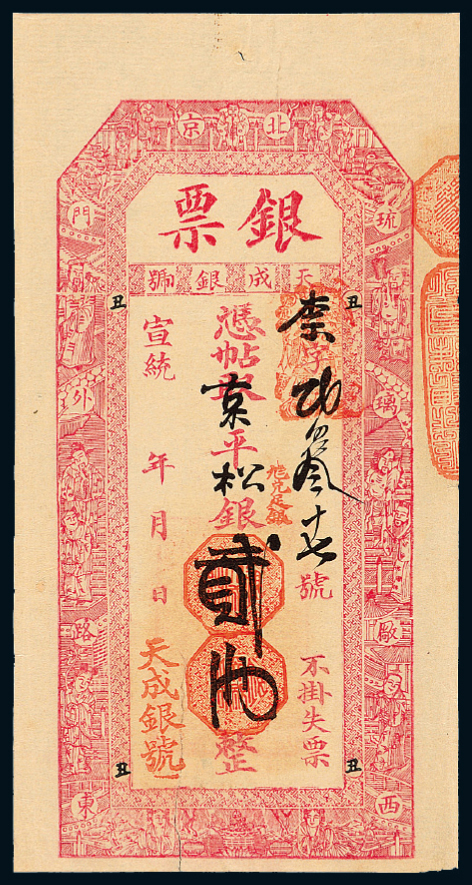 北京
琉璃厰西
門外路東
銀票
天成銀號
字 號 不掛失票
憑帖取京平松銀貳兩整
宣統 年 月 日 天成銀號
丑
丑
丑
丑